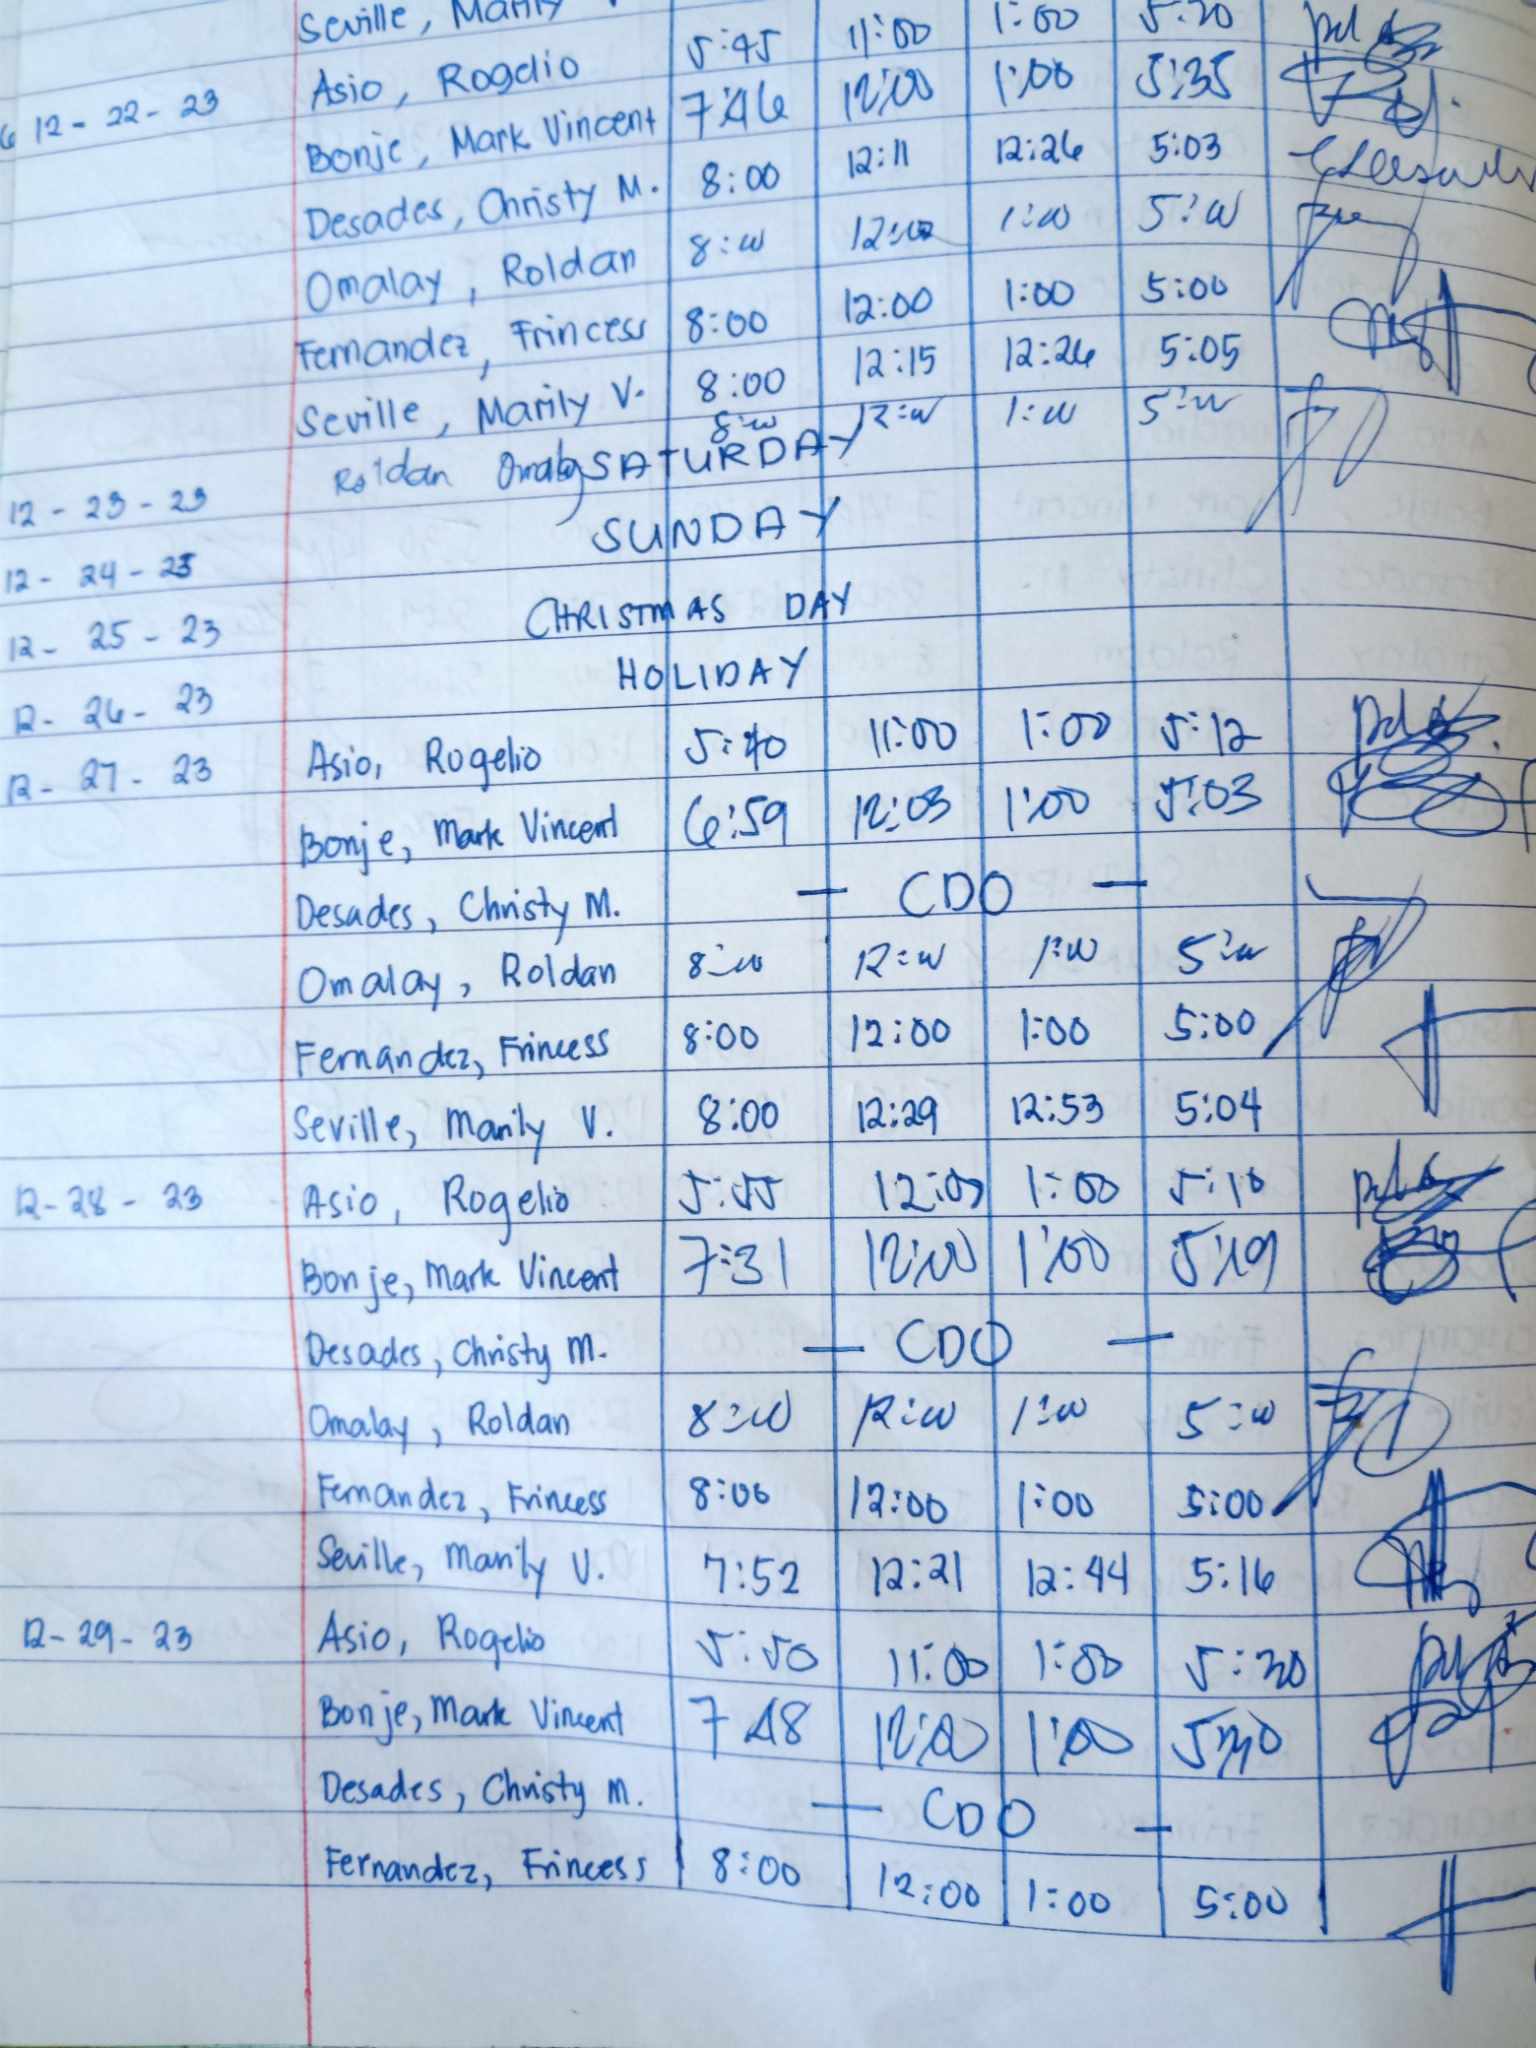 Seville, Marily
12-22-23 Asio, Rogelio 5:45 11:00 1:00 5:20
Bonje, Mark Vincent 7:46 12:00 1:00 5:35
Desades, Christy M. 8:00 12:11 12:26 5:03
Omalay, Roldan 8:00 12:00 1:00 5:00
Fernandez, Frincess 8:00 12:00 1:00 5:00
Seville, Marily V. 8:00 12:15 12:26 5:05
12-23-23 Roldan Omalay SATURDAY 8:00 12:00 1:00 5:00
12-24-23 SUNDAY
12-25-23 CHRISTMAS DAY
12-26-23 HOLIDAY
12-27-23 Asio, Rogelio 5:40 11:00 1:00 5:12
Bonje, Mark Vincent 6:59 12:03 1:00 5:03
Desades, Christy M. — CDO —
Omalay, Roldan 8:00 12:00 1:00 5:00
Fernandez, Frincess 8:00 12:00 1:00 5:00
Seville, Marily V. 8:00 12:29 12:53 5:04
12-28-23 Asio, Rogelio 5:55 12:00 1:00 5:10
Bonje, Mark Vincent 7:31 12:00 1:00 5:19
Desades, Christy M. — CDO —
Omalay, Roldan 8:00 12:00 1:00 5:00
Fernandez, Frincess 8:00 12:00 1:00 5:00
Seville, Marily V. 7:52 12:21 12:44 5:16
12-29-23 Asio, Rogelio 5:50 11:00 1:00 5:20
Bonje, Mark Vincent 7:48 12:00 1:00
Desades, Christy M. — CDO —
Fernandez, Frincess 8:00 12:00 1:00 5:00